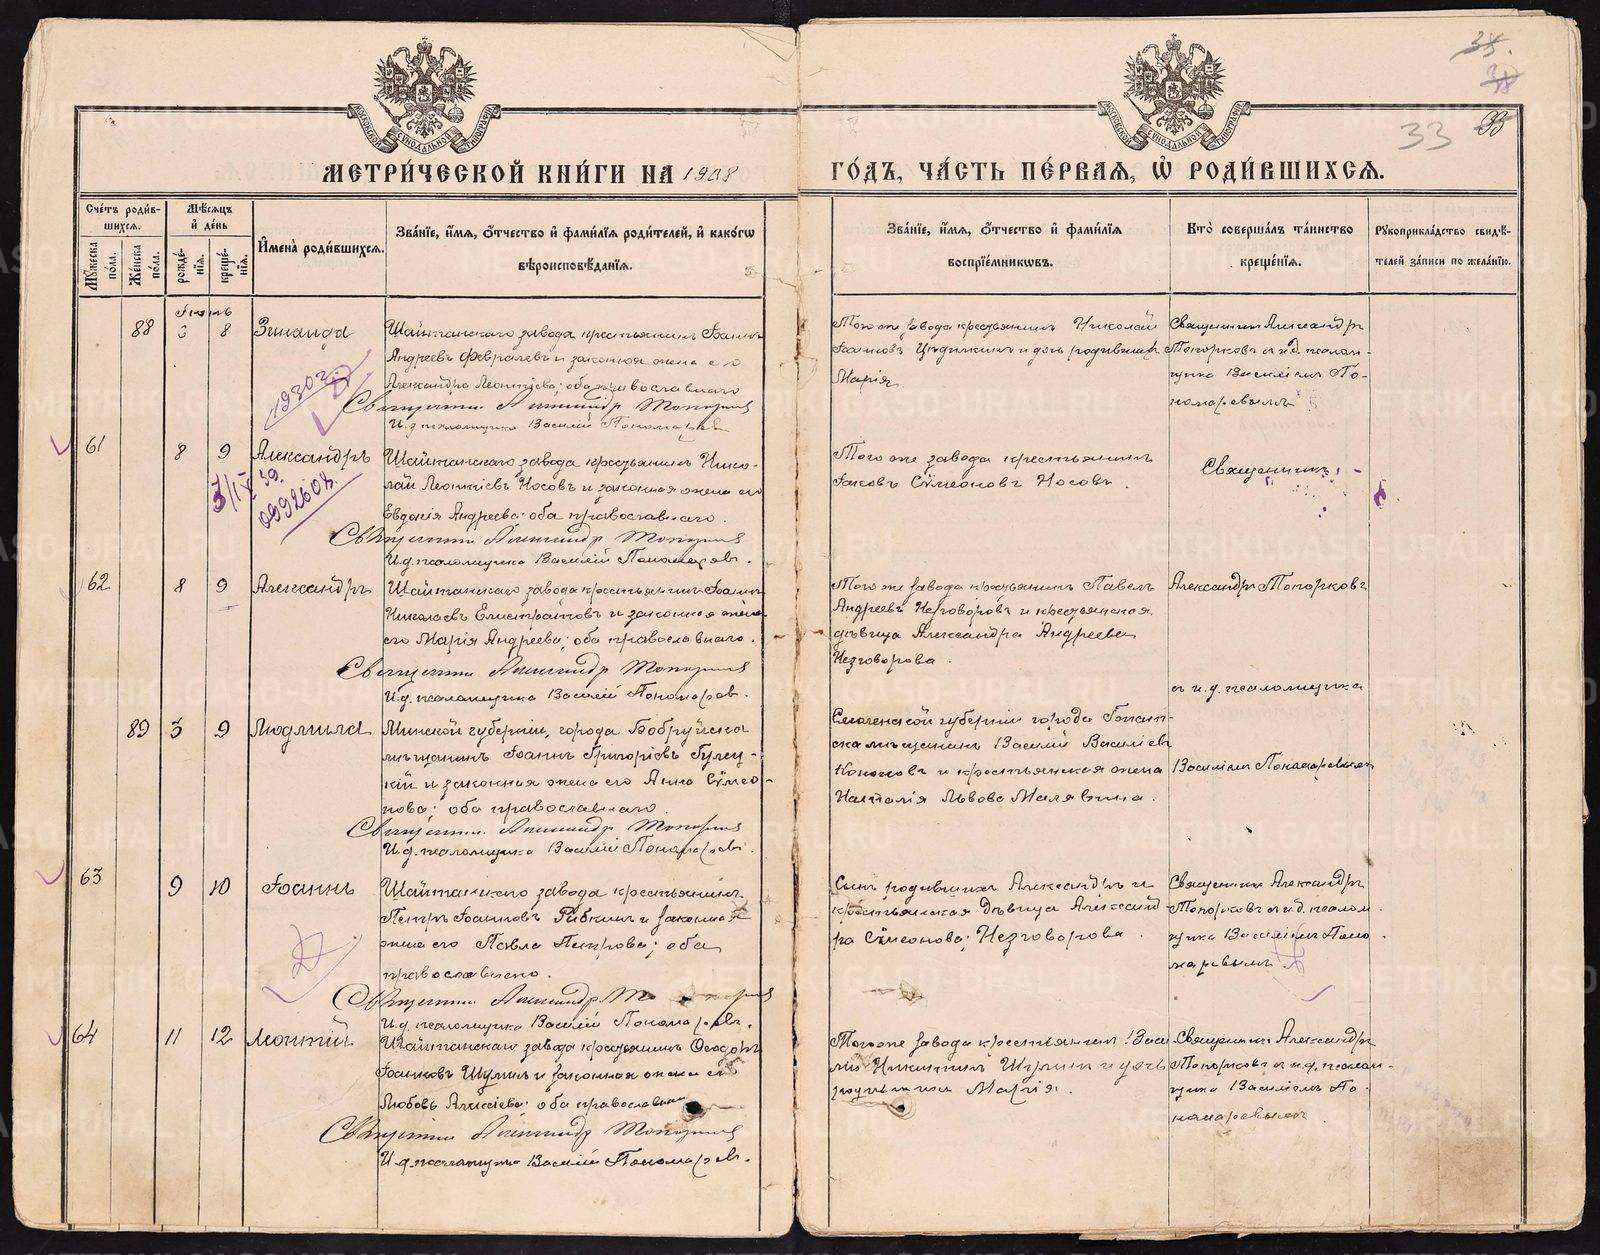 МЕТРИ́ЧЕСКОЙ КНИ́ГИ НА 1908
ГО́ДЪ, ЧА́СТЬ ПЕ́РВАѦ, Ѡ҆ РОДИ́ВШИХСѦ.
33
Сче́тъ роди́в-
шихсѧ.
Мꙋ́жеска по́ла.
Же́нска по́ла.
Мѣ́сѧцъ
и҆ де́нь
рожде́-
нїѧ.
креще́-
нїѧ.
И҆мена̀ роди́вшихсѧ.
Зва́нїе, и҆́мѧ, ѻ҆́тчество и҆ фами́лїѧ роди́телей, и҆ како́гѡ
вѣроисповѣ́данїѧ.
Зва́нїе, и҆́мѧ, ѻ҆́тчество и҆ фами́лїѧ
воспрїе́мникѡвъ.
Кто̀ соверша́лъ та́инство
креще́нїѧ.
Рꙋкоприкла́дство свидѣ́-
телей за́писи по жела́нїю.
Іюнь
88 6 8 Зинаида
Шайтанскаго завода крестьянинъ Іоаннъ
Андреевъ Февралевъ и законная жена его
Александра Леонтіева; оба православнаго
Священникъ Александръ Топорковъ
И. д. псаломщика Василій Пономаревъ
Того же завода крестьянинъ Николай
Іоанновъ и дочь родившихъ
Марія
Священникъ Александръ
Топорковъ съ и. д. псалом-
щика Василіемъ По-
номаревымъ
61 8 9 Александръ
Шайтанскаго завода крестьянинъ Нико-
лай Леонтіевъ Носовъ и законная жена его
Евдокія Андреева; оба православнаго.
Священникъ Александръ Топорковъ
И. д. псаломщика Василій Пономаревъ.
Того же завода крестьянинъ
Іаковъ Сѵмеоновъ Носовъ.
Священникъ
62 8 9 Александръ
Шайтанскаго завода крестьянинъ Іоаннъ
Николаевъ Елистратовъ и законная жена
его Марія Андреева; оба православнаго.
Священникъ Александръ Топорковъ
И. д. псаломщика Василій Пономаревъ.
Того же завода крестьянинъ Павелъ
Андреевъ Незговоровъ и крестьянская
дѣвица Александра Андреева
Незговорова.
Александръ Топорковъ
съ и. д. псаломщика
89 5 9 Людмила
Минской губерніи, города Бобруйска
мѣщанинъ Іоаннъ Григорьевъ
и законная жена его Анна Сѵмео-
нова; оба православнаго.
Священникъ Александръ Топорковъ
И. д. псаломщика Василій Пономаревъ.
Смоленской губерніи города
мѣщанинъ Василій Василіевъ
Кононовъ и крестьянская жена
Наталія Львова Малявина.
Василіемъ Пономаревымъ
63 9 10 Іоаннъ
Шайтанскаго завода крестьянинъ
Петръ Іоанновъ Рябкинъ и законная
жена его Павла Петрова; оба
православнаго.
Священникъ Александръ Топорковъ
И. д. псаломщика Василій Пономаревъ.
Сынъ родившихъ Александръ и
крестьянская дѣвица Александ-
ра Сѵмеонова Незговорова
Священникъ Александръ
Топорковъ съ и. д. псалом-
щика Василіемъ Поно-
маревымъ
64 11 12 Леонтій
Шайтанскаго завода крестьянинъ Ѳеодоръ
Іоанновъ Шулинъ и законная жена его
Любовь Алексіева; оба православнаго
Священникъ Александръ Топорковъ
И. д. псаломщика Василій Пономаревъ.
Того же завода крестьянинъ Васи-
лій Никитинъ Шулинъ и дочь
родившихъ Марія.
Священникъ Александръ
Топорковъ съ и. д. псалом-
щика Василіемъ По-
номаревымъ